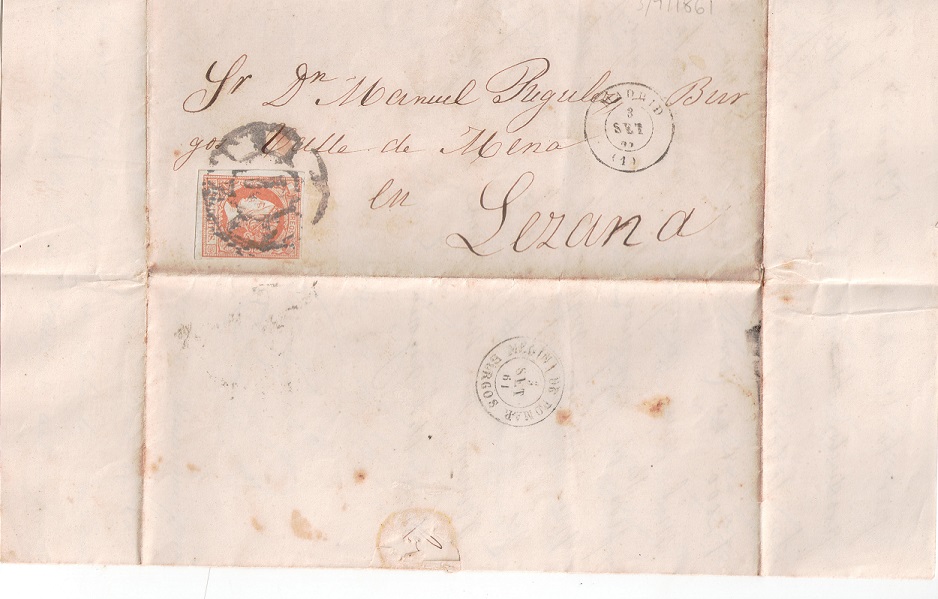 3/9/1861
Sr Dn Manuel Bur
gos Valle de Mena
en
Lezana
MADRID
3
SET
(1)
DE POMAR BURGOS
3
SET
61